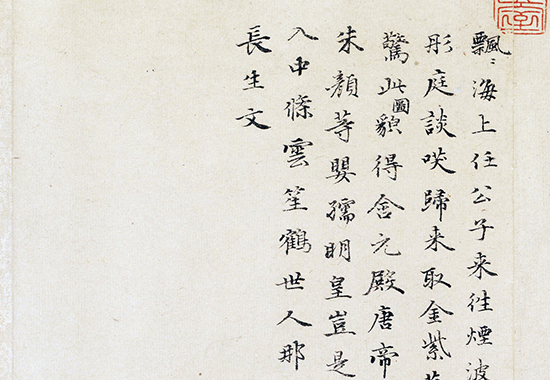 飄〻海上任公子来往煙波
彤庭談咲歸来取金紫
驚此圖貌得含元殿唐帝
朱顏等嬰孺明皇豈是
入中條雲笙鶴世人那
長生文